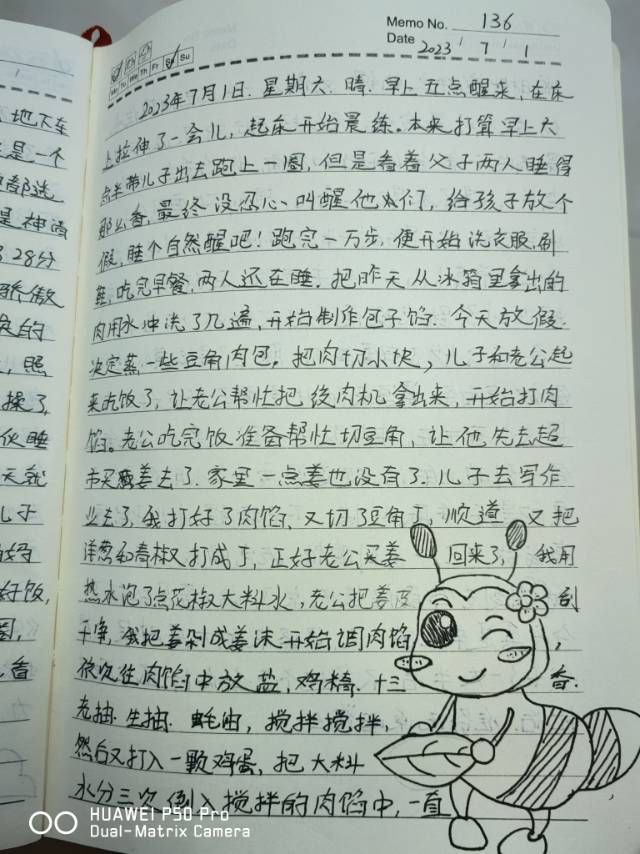 Memo No. 136
Mo Tu We Th Fr Sa Su
Date 2023 / 7 / 1
2023年7月1日. 星期六. 晴. 早上五点醒来, 在床
上拉伸了一会儿, 起床开始晨练. 本来打算早上六
点半带儿子出去跑上一圈, 但是看着父子两人睡得
那么香, 最终没忍心叫醒他们, 给孩子放个
假, 睡个自然醒吧! 跑完一万步, 便开始洗衣服, 刷
鞋, 吃完早餐, 两人还在睡. 把昨天从冰箱里拿出的
肉用水冲洗了几遍, 开始制作包子馅. 今天放假.
决定蒸一些豆角肉包. 把肉切小块, 儿子和老公起
来吃饭了, 让老公帮忙把绞肉机拿出来, 开始打肉
馅. 老公吃完饭准备帮忙切豆角, 让他先去超
市买姜去了. 家里一点姜也没有了. 儿子去写作
业去了, 我打好了肉馅, 又切了豆角丁, 顺道又把
洋葱和青椒打成丁, 正好老公买姜回来了, 我用
热水泡了点花椒大料水, 老公把姜皮刮
干净, 我把姜剁成姜沫开始调肉馅,
依次往肉馅中放盐, 鸡精. 十三香.
老抽. 生抽. 蚝油, 搅拌搅拌,
然后又打入一颗鸡蛋, 把大料
水分三次倒入搅拌的肉馅中, 一直
地下车
是一个
都选
是神
28分
骄傲
的
, 照
操了
伙睡
天就
儿子
好饭,
圈,
香
HUAWEI P50 Pro
Dual-Matrix Camera